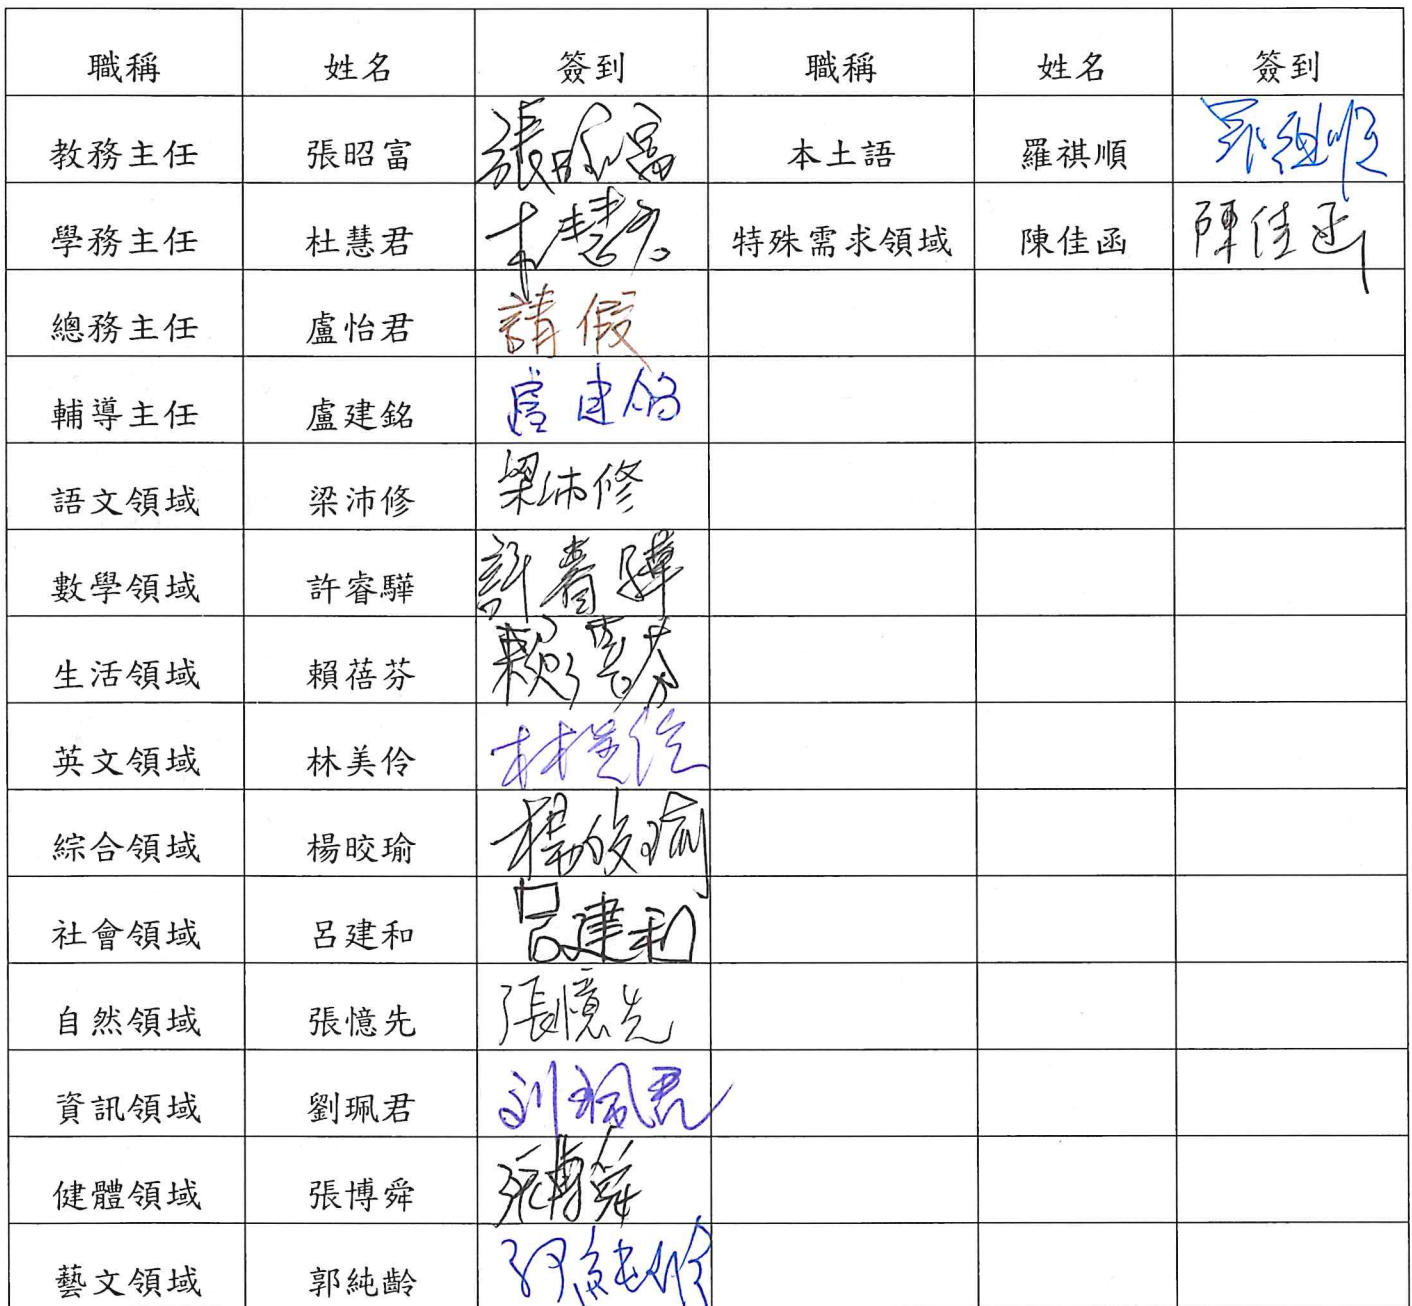 職稱 姓名 簽到 職稱 姓名 簽到
教務主任 張昭富 張昭富 本土語 羅祺順 羅祺順
學務主任 杜慧君 杜慧君 特殊需求領域 陳佳函 陳佳函
總務主任 盧怡君 請假
輔導主任 盧建銘 盧建銘
語文領域 梁沛修 梁沛修
數學領域 許睿驊 許睿驊
生活領域 賴蓓芬 賴蓓芬
英文領域 林美伶 林美伶
綜合領域 楊晈瑜 楊晈瑜
社會領域 呂建和 呂建和
自然領域 張憶先 張憶先
資訊領域 劉珮君 刘珮君
健體領域 張博舜 張博舜
藝文領域 郭純齡 郭純齡